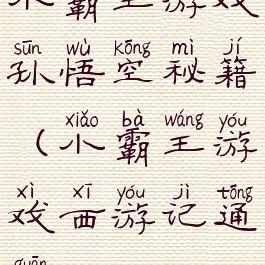 sūn wù kōng mì jí
孙悟空秘籍
xiǎo bà wáng yóu
（小霸王游
xì xī yóu jì tōng
戏西游记通